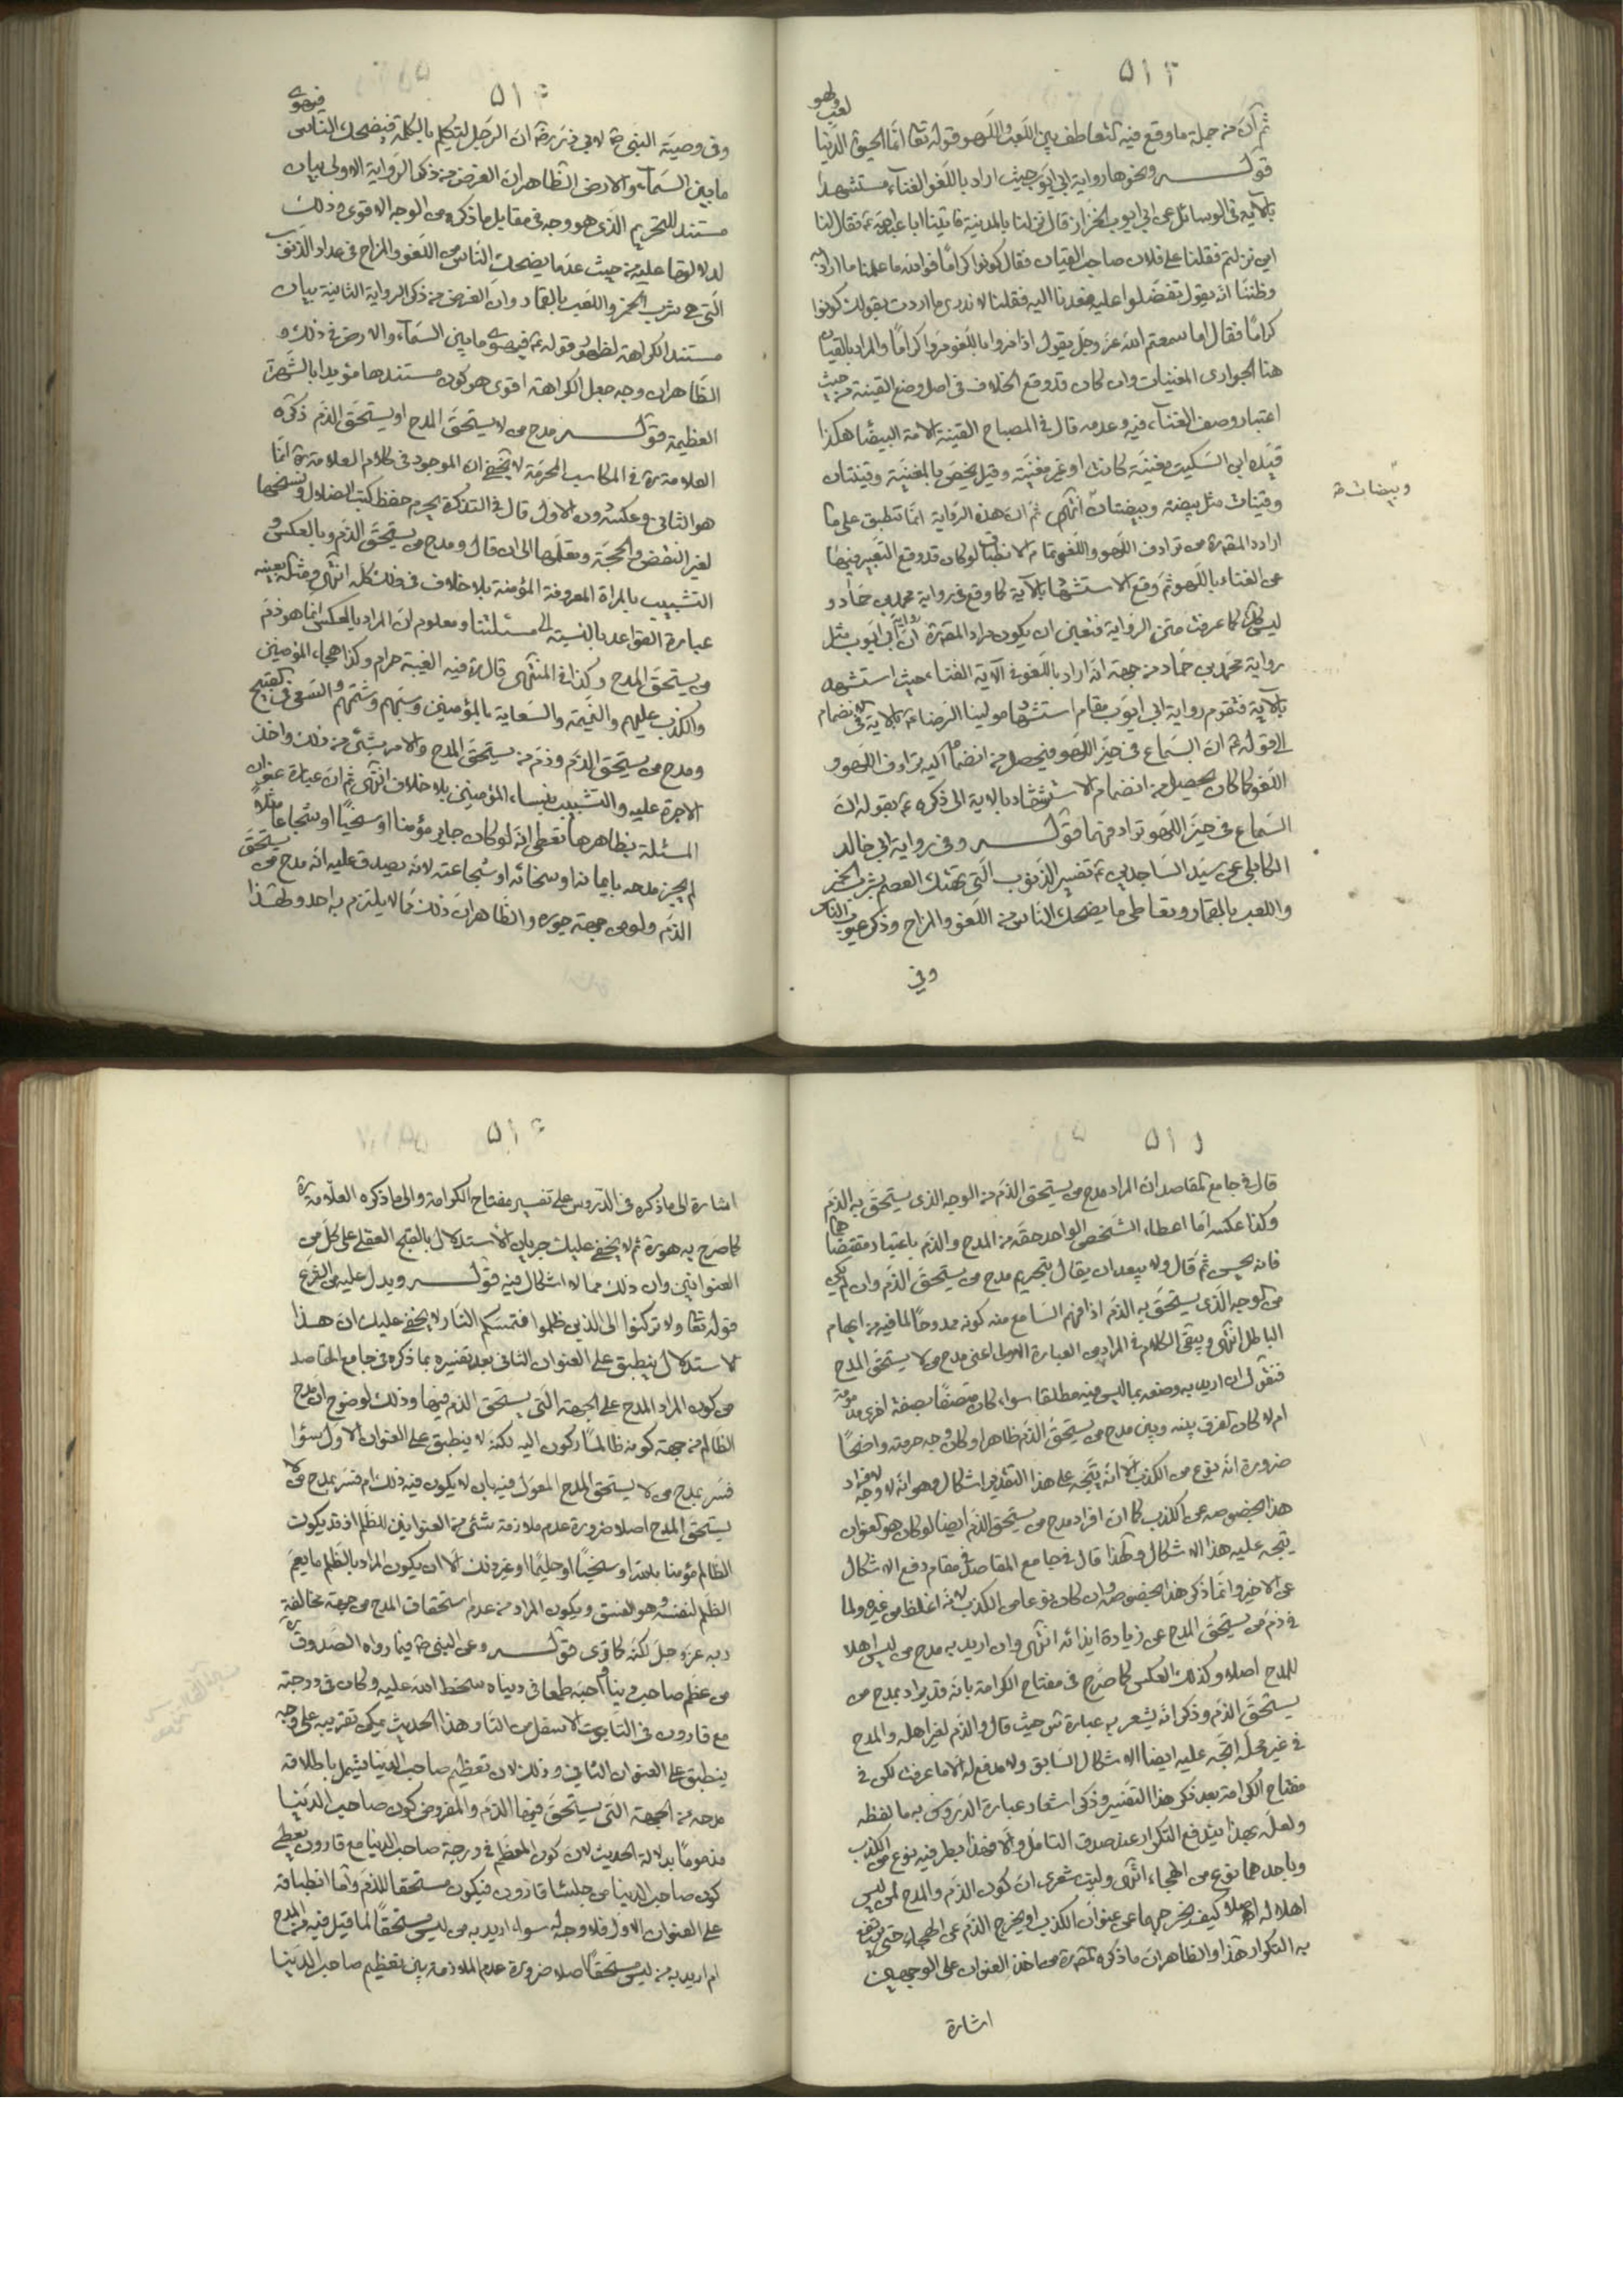 ٥١٣
ثم ان من جملة ما وقع فيه التعاطف بين اللعب واللهو قوله تعا انما الحيوة الدنيا
لعب ولهو
قولـــه ونحوها رواية ابي ايوب حيث اراد باللغو الغناء مستشهدا
بالآية في الوسائل عن ابي ايوب الخزاز قال نزلنا بالمدينة فاتينا ابا عبد الله ع فقال لنا
اين نزلتم فقلنا على فلان صاحب القيان فقال كونوا كراما فوالله ما علمنا ما اراد به
وظننا انه يقول تفضلوا عليه فعدنا اليه فقلنا لا ندري ما اردت بقولك كونوا
كراما فقال اما سمعتم الله عز وجل يقول اذا مروا باللغو مروا كراما والمراد بالقيان
هنا الجواري المغنيات وان كان قد وقع الخلاف في اصل وضع القينة من حيث
اعتبار وصف الغناء فيه وعدمه قال في المصباح القينة الامة البيضاء هكذا
قيده ابن السكيت مغنية كانت او غير مغنية وقيل يختص بالمغنية وقينتان
وقينات مثل بيضة وبيضتان انتهى ثم ان هذه الرواية انما تنطبق على ما
وبيضات ص
اراده المصره من ترادف اللهو واللغو تمام الانطباق لو كان قد وقع التعبير فيها
عن الغناء باللهو ثم وقع الاستشهاد بالآية كما وقع في رواية محمد بن حماد و
ليس كك كما عرفت متن الرواية فتعين ان يكون مراد المصره ان رواية ابي ايوب مثل
رواية محمد بن حماد من جهة انه اراد باللغو في الآية الغناء حيث استشهد
بالآية فتقوم رواية ابي ايوب مقام استشهاد مولينا الرضا ع بالآية في انضمام
الى قوله ع ان السماع في حيز اللهو فيحصل من انضمام اليه ترادف اللهو و
اللغو كما كان يحصل من انضمام الاستشهاد بالاية الى ذكره ع بقوله ان
السماع في حيز اللهو ترادفهما قولـــه وفي رواية ابي خالد
الكابلي عن سيد الساجدين ع تفسير الذنوب التي تهتك العصم بشرب الخمر
واللعب بالقمار وتعاطى ما يضحك الناس من اللغو والمزاح وذكر عيوب الناس
وفي
٥١٤
وفي وصية النبي ص لابي ذر رضه ان الرجل ليتكلم بالكلمة فيضحك الناس
فيهوي
ما بين السماء والارض الظاهر ان الغرض من ذكر الرواية الاولى بيان
مستند للتحريم الذي هو وجه في مقابل ما ذكره من الوجه الاقوى وذلك
لدلالتها عليه من حيث عدها ما يضحك الناس من اللغو والمزاح في عداد الذنوب
التي هي شرب الخمر واللعب بالقمار وان الغرض من ذكر الرواية الثانية بيان
مستند الكراهة لظهور قوله ع فيهوي ما بين السماء والارض في ذلك و
الظاهر ان وجه جعل الكراهة اقوى هو كون مستندها مؤيدا بالشهرة
العظيمة قولـــه مدح من لا يستحق المدح او يستحق الذم ذكره
العلامة ره في المكاسب المحرمة لا يخفى ان الموجود في كلام العلامة ره انما
هو الثاني وعكسه دون الاول قال في التذكرة يحرم حفظ كتب الضلال ونسخها
لغير النقض والحجة وتعلمها الى ان قال ومدح من يستحق الذم وبالعكس و
التشبيب بالمراة المعروفة المؤمنة بلا خلاف في ذلك كله انتهى ومثله بعينه
عبارة القواعد بالنسبة الى مسئلتنا ومعلوم ان المراد بالعكس انما هو ذم
من يستحق المدح وكذا في المنتهى قال ره فيه الغيبة حرام وكذا هجاء المؤمنين
والكذب عليهم والنميمة والسعاية بالمؤمنين وسبهم وشتمهم والسعي في القبيح
ومدح من يستحق الذم وذم من يستحق المدح والامر بشئ من ذلك واخذ
الاجرة عليه والتشبيب بنساء المؤمنين بلا خلاف انتهى ثم ان عبارة عنوان
المسئلة بظاهرها تعطى انه لو كان جاير مؤمنا او سخيا او شجاعا مثلا
لم يجز مدحه بايمانه او سخائه او شجاعته لانه يصدق عليه انه مدح من يستحق
الذم ولو من جهة جوره والظاهر ان ذلك مما لا يلتزم به احد ولهذا
٥١٥
قال في جامع المقاصد ان المراد مدح من يستحق الذم من الوجه الذي يستحق به الذم
وكذا عكسه اما اعطاء الشخص الواحد حقه من المدح والذم باعتبار مقتضاهما
فانه يحسن ثم قال ولا يبعد ان يقال بتحريم مدح من يستحق الذم وان لم يكن
من الوجه الذي يستحق به الذم اذا فهم السامع منه كونه ممدوحا لما فيه من ايهام
الباطل انتهى ويبقى الكلام في المراد من العبارة الاولى اعني مدح من لا يستحق المدح
فنقول ان اريد به وصفه بما ليس فيه مطلقا سواء كان متصفا بصفة اخرى مذمومة
ام لا كان الفرق بينه وبين مدح من يستحق الذم ظاهرا وكان وجه حرمته واضحا
ضرورة انه نوع من الكذب الا انه يتجه على هذا التقدير اشكال وهو انه لا وجه لافراد
هذا بخصوصه عن الكذب كما ان افراد مدح من يستحق الذم ايضا لو كان هو العنوان
يتجه عليه هذا الاشكال ولهذا قال في جامع المقاصد في مقام دفع الاشكال
عن الاخير وانما ذكر هذا بخصوصه وان كان نوعا من الكذب لانه اغلظ من غيره ولما
في ذم من يستحق المدح من زيادة ايذائه انتهى وان اريد به مدح من ليس اهلا
للمدح اصلا وكذلك العكس كما صرح في مفتاح الكرامة بانه قد يراد بمدح من
يستحق الذم وذكر انه يشعر به عبارة س حيث قال والذم لغير اهله والمدح
في غير محله اتجه عليه ايضا الاشكال السابق ولا مدفع له الا ما عرفت لكن في
مفتاح الكرامة بعد ذكر هذا التفسير وذكر اشعار عبارة الدروس به ما لفظه
ولعله بهذا يندفع التكرار عند صدق التامل والا فهذا يطرفيه نوع من الكذب
وباحدهما نوع من الهجاء انتهى وليت شعري ان كون الذم والمدح لمن ليس
اهلا له اصلا كيف يخرجهما عن عنوان الكذب او يخرج الذم عن الهجاء حتى يندفع
به التكرار هذا والظاهر ان ما ذكره المصره من اخذ العنوان على الوجهين
اشارة
٥١٦
اشارة الى ما ذكره في الدروس على تفسير مفتاح الكرامة والى ما ذكره العلامة ره
كما صرح به هو ره ثم لا يخفى عليك جريان الاستدلال بالقبح العقلي على كل من
العنوانين وان ذلك مما لا اشكال فيه قولـــه ويدل عليه من الشرع
قوله تعا ولا تركنوا الى الذين ظلموا فتمسكم النار لا يخفى عليك ان هذا
الاستدلال ينطبق على العنوان الثاني بعد تفسيره بما ذكره في جامع المقاصد
من كون المراد المدح على الجهة التي يستحق الذم فيها وذلك لوضوح ان مدح
الظالم من جهة كونه ظالما ركون اليه لكنه لا ينطبق على العنوان الاول سواء
فسر بمدح من لا يستحق المدح المعول فيه بان لا يكون فيه ذلك ام فسر بمدح من لا
يستحق المدح اصلا ضرورة عدم ملازمة شئ من العنوانين للظلم اذ قد يكون
الظالم مؤمنا بالله او سخيا او حليما او غير ذلك الا ان يكون المراد بالظلم ما يعم
الظلم لنفسه وهو الفسق ويكون المراد من عدم استحقاق المدح من جهة مخالفة
ربه عز وجل لكنه كما ترى قولـــه وعن النبي ص فيما رواه الصدوق ره
من عظم صاحب دنيا واحبه طمعا في دنياه سخط الله عليه وكان في درجته
مع قارون في التابوت الاسفل من النار هذا الحديث يمكن تقريبه على وجه
ينطبق على العنوان الثاني وذلك لان تعظيم صاحب الدنيا يشمل باطلاقه
مدحه من الجهة التي يستحق فيها الذم والمفروض كون صاحب الدنيا
مذموما بدلالة الحديث لان كون المعظم في درجة صاحب الدنيا مع قارون يعطى
كون صاحب الدنيا من جلساء قارون فيكون مستحقا للذم واما انطباقه
على العنوان الاول فلا وجه له سواء اريد به من ليس مستحقا لما قيل فيه من المدح
ام اريد به من ليس مستحقا اصلا ضرورة عدم الملازمة بين تعظيم صاحب الدنيا